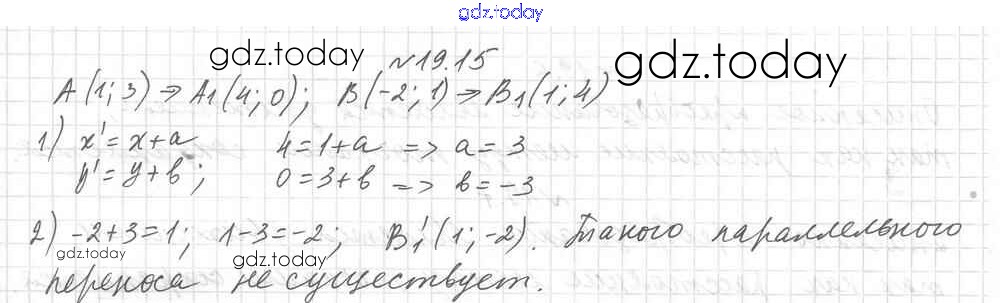 gdz.today
gdz.today №19.15 gdz.today
A(1; 3) ⇒ A₁(4; 0); B(-2; 1) ⇒ B₁(1; 4)
1) x' = x+a 4=1+a => a=3
y' = y+b; 0=3+b => b=-3
2) -2+3=1; 1-3=-2; B₁'(1; -2). Такого параллельного
gdz.today gdz.today
переноса не существует.